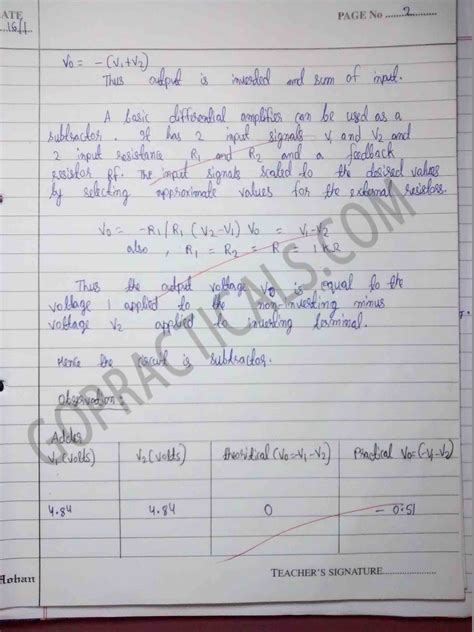 ATE
PAGE No ..........2........
16/1
V0 = -(V1+V2)
Thus output is inverded and sum of input.
A basic differential amplifier can be used as a
subtractor. It has 2 input signals V1 and V2 and
2 input resistance R1 and R2 and a feedback
resistor Rf. The input signals scaled to the desired values
by selecting approximate values for the external resistors.
V0 = -R1/R1 (V2-V1) V0 = V1-V2
also, R1 = R2 = R = 1KΩ
Thus the output voltage V0 is equal to the
voltage 1 applied to the non-inverting minus
voltage V2 applied to inverting terminal.
Hence the circuit is subtractor.
Observation:
Adder
V1(volts) V2(volts) theoritical (V0=-V1-V2) Practical V0=(-V1-V2)
4.84 4.84 0 - 0.51
TEACHER'S SIGNATURE..................
GOPRACTICALS.COM